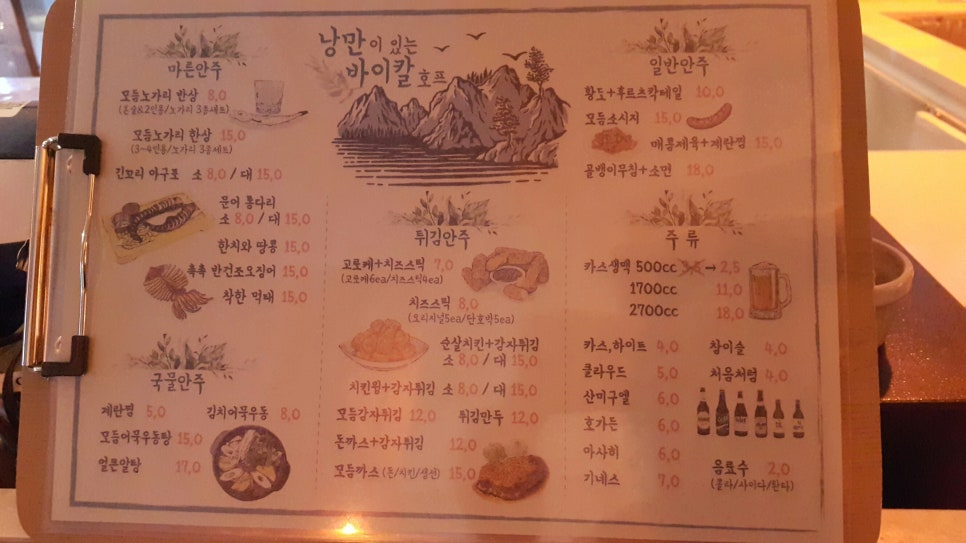 낭만이 있는
바이칼 호프
마른안주
모듬노가리 반상 8,0
(혼술&2인용/노가리 3종세트)
모듬노가리 한상 15,0
(3~4인용/노가리 3종세트)
긴꼬리 아구포 소 8,0 / 대 15,0
문어 통다리
소 8,0 / 대 15,0
한치와 땅콩 15,0
촉촉 반건조오징어 15,0
착한 먹태 15,0
국물안주
계란찜 5,0 김치어묵우동 8,0
모듬어묵우동탕 15,0
얼큰알탕 17,0
튀김안주
고로케+치즈스틱 7,0
(고로케6ea/치즈스틱4ea)
치즈스틱 8,0
(오리지널5ea/단호박5ea)
순살치킨+감자튀김
소 8,0 / 대 15,0
치킨윙+감자튀김 소 8,0 / 대 15,0
모듬감자튀김 12,0 튀김만두 12,0
돈까스+감자튀김 12,0
모듬까스 (돈/치킨/생선) 15,0
일반안주
황도+후르츠칵테일 10,0
모듬소시지 15,0
매콤제육+계란찜 15,0
골뱅이무침+소면 18,0
주 류
카스생맥 500cc 3,5 → 2,5
1700cc 11,0
2700cc 18,0
카스,하이트 4,0 참이슬 4,0
클라우드 5,0 처음처럼 4,0
산미구엘 6,0
호가든 6,0
아사히 6,0
기네스 7,0
음료수 2,0
(콜라/사이다/환타)